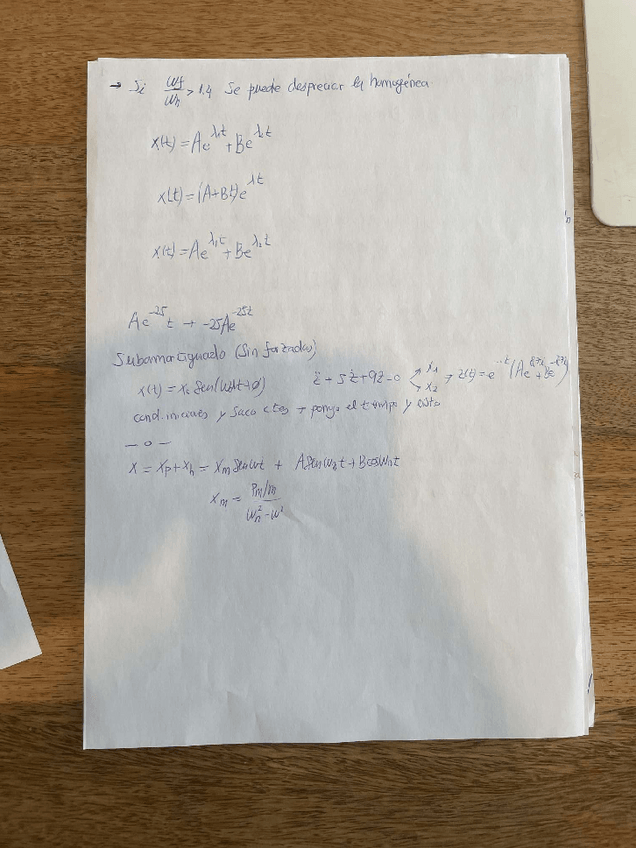 → Si ωf/ωn > 1.4 Se puede despreciar la homogénea
x(t) = Ae^λ1t + Be^λ2t
x(t) = (A+Bt)e^λt
x(t) = Ae^λ1t + Be^λ2t
Ae^-25 t → -25Ae^-25t
Subamortiguado (Sin forzadas)
x(t) = x0 Sen(ωdt+φ)
z̈ + 5ż + 9z = 0 → x1 x2 → z(t) = e (Ae + Be )
cond. iniciales y saco ctes → pongo el tiempo y
— o —
x = xp + xh = xm Senωt + ASenωnt + Bcosωnt
xm = Pm/m / ωn² - ω²